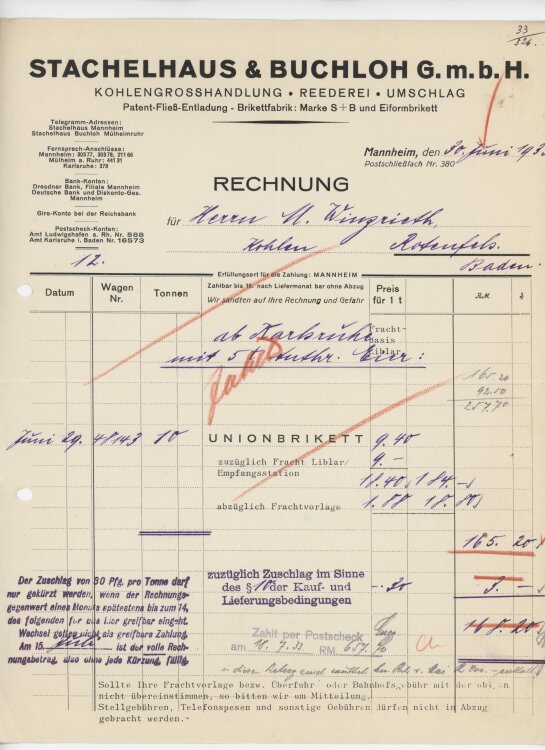 33
326
STACHELHAUS & BUCHLOH G.m.b.H.
KOHLENGROSSHANDLUNG • REEDEREI • UMSCHLAG
Patent-Fließ-Entladung - Brikettfabrik: Marke S+B und Eiformbrikett
Telegramm-Adressen:
Stachelhaus Mannheim
Stachelhaus Buchloh Mülheimruhr
Fernsprech-Anschlüsse:
Mannheim: 30377, 30378, 21166
Mülheim a. Ruhr: 441 31
Karlsruhe: 976
Bank-Konten:
Dresdner Bank, Filiale Mannheim
Deutsche Bank und Diskonto-Ges.
Mannheim
Giro-Konto bei der Reichsbank
Postscheck-Konten:
Amt Ludwigshafen a. Rh. Nr. 588
Amt Karlsruhe i. Baden Nr. 16573
Mannheim, den 30. Juni 193
Postschließfach Nr. 380
RECHNUNG
für Herrn M. Wingrieth,
Kohlen Rotenfels.
Baden.
12.
Erfüllungsort für die Zahlung: MANNHEIM
Datum
Wagen Nr.
Tonnen
Zahlbar bis 15. nach Liefermonat bar ohne Abzug
Wir sandten auf Ihre Rechnung und Gefahr
Preis für 1 t
RM
ab Karlsruhe
Fracht-
basis
Liblar
mit 5 anthr. Eier:
165.20
92.50
257.70
bezahlt
Juni 29. 48143 10 UNIONBRIKETT 9.40
zuzüglich Fracht Liblar/
Empfangsstation 9.-
18.40 184.-
abzüglich Frachtvorlage 1.88 18.80
165.20
zuzüglich Zuschlag im Sinne
des § 10 der Kauf- und
Lieferungsbedingungen
-.30 3.-
168.20
Der Zuschlag von 30 Pfg. pro Tonne darf
nur gekürzt werden, wenn der Rechnungs-
gegenwert eines Monats spätestens bis zum 14.
des folgenden für uns hier greifbar eingeht.
Wechsel gelten nicht als greifbare Zahlung.
Am 15. Juli ist der volle Rech-
nungsbetrag, also ohne jede Kürzung, fällig.
Zahlt per Postscheck
am 11.7.33 RM 657.70
Sollte Ihre Frachtvorlage bezw. Überfuhr- oder Bahnhofsgebühr mit der obigen
nicht übereinstimmen, so bitten wir um Mitteilung.
Stellgebühren, Telefonspesen und sonstige Gebühren dürfen nicht in Abzug
gebracht werden.-